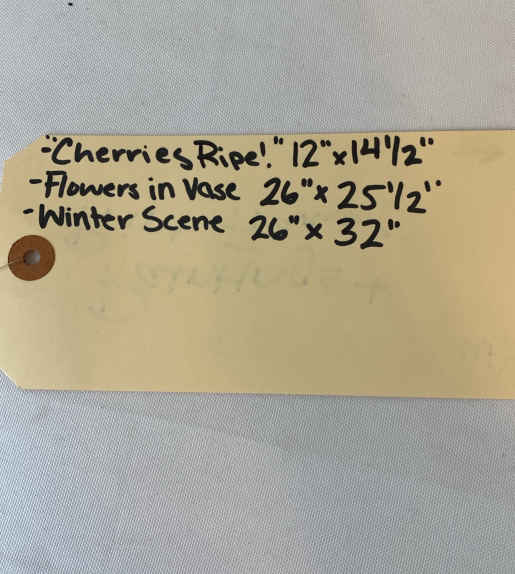 -"Cherries Ripe!" 12"x14 1/2"
-Flowers in Vase 26"x 25 1/2"
-Winter Scene 26"x 32"